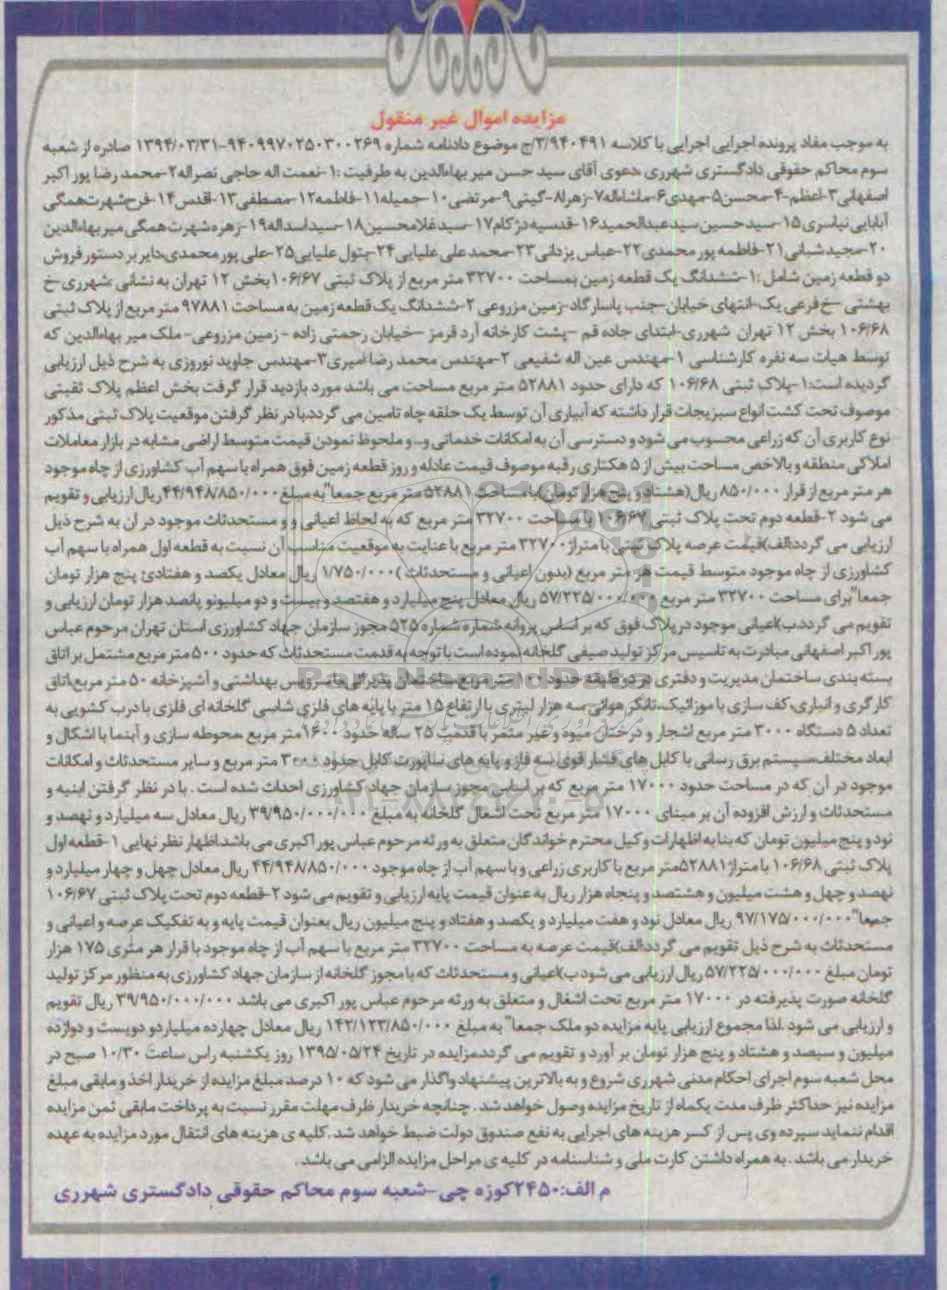 مزایده اموال غیر منقول
به موجب مفاد پرونده اجرایی اجرایی با کلاسه ۳/۹۴۰۴۹۱/ج موضوع دادنامه شماره ۹۴۰۹۹۷۰۲۵۰۳۰۰۲۶۹-۱۳۹۴/۰۳/۳۱ صادره از شعبه
سوم محاکم حقوقی دادگستری شهرری ،دعوی آقای سید حسن میر بهاءالدین به طرفیت :۱-نعمت اله حاجی نصراله۲-محمد رضا پور اکبر
اصفهانی۳-اعظم۴-محسن۵-مهدی۶-ماشاءاله۷-زهرا۸-گیتی۹-مرتضی۱۰-جمیله۱۱-فاطمه۱۲-مصطفی۱۳-اقدس۱۴-فرح شهرت همگی
آبابایی نیاسری۱۵-سیدحسین سیدعبدالحمید۱۶-قدسیه دژکام۱۷-سید غلامحسین۱۸-سیداسداله۱۹-زهره شهرت همگی میر بهاءالدین
۲۰-مجیدشبانی۲۱-فاطمه پور محمدی۲۲-عباس یزدانی۲۳-محمد علی علیایی۲۴-بتول علیایی۲۵-علی پور محمدی،دایر بر دستور فروش
دو قطعه زمین شامل :۱-ششدانگ یک قطعه زمین بمساحت ۳۲۷۰۰ متر مربع از پلاک ثبتی ۱۰۶/۶۷بخش ۱۲ تهران به نشانی :شهرری-خ
بهشتی -خ فرعی یک-انتهای خیابان-جنب پاسارگاد-زمین مزروعی ۲-ششدانگ یک قطعه زمین به مساحت ۹۷۸۸۱ متر مربع از پلاک ثبتی
۱۰۶/۶۸ بخش ۱۲ تهران شهرری-ابتدای جاده قم -پشت کارخانه آرد قرمز -خیابان رحمتی زاده - زمین مزروعی- ملک میر بهاءالدین که
توسط هیات سه نفره کارشناسی ۱-مهندس عین اله شفیعی ۲-مهندس محمد رضا امیری۳-مهندس جاوید نوروزی به شرح ذیل ارزیابی
گردیده است:۱-پلاک ثبتی ۱۰۶/۶۸ که دارای حدود ۵۲۸۸۱ متر مربع مساحت می باشد مورد بازدید قرار گرفت بخش اعظم پلاک ثقبتی
موصوف تحت کشت انواع سبزیجات قرار داشته که آبیاری آن توسط یک حلقه چاه تامین می گردد.با در نظر گرفتن موقعیت پلاک ثبتی مذکور
نوع کاربری آن که زراعی محسوب می شود و دسترسی آن به امکانات خدماتی و... و ملحوظ نمودن قیمت متوسط اراضی مشابه در بازار معاملات
املاکی منطقه و بالاخص مساحت بیش از ۵ هکتاری رقبه موصوف قیمت عادله و روز قطعه زمین فوق همراه با سهم آب کشاورزی از چاه موجود
هر متر مربع از قرار ۸۵۰/۰۰۰ ریال(هشتاد و پنج هزار تومان) با مساحت ۵۲۸۸۱ متر مربع جمعا"به مبلغ ۴۴/۹۴۸/۸۵۰/۰۰۰ریال ارزیابی و تقویم
می شود ۲-قطعه دوم تحت پلاک ثبتی ۱۰۶/۶۷ با مساحت ۳۲۷۰۰ متر مربع که به لحاظ اعیانی و و مستحدثات موجود در ان به شرح ذیل
ارزیابی می گردد:الف)قیمت عرصه پلاک ثبتی با متراژ ۳۲۷۰۰ متر مربع با عنایت به موقعیت مناسب آن نسبت به قطعه اول همراه با سهم آب
کشاورزی از چاه موجود متوسط قیمت هر متر مربع (بدون اعیانی و مستحدثات )۱/۷۵۰/۰۰۰ ریال معادل یکصد و هفتادئ پنج هزار تومان
جمعا"برای مساحت ۳۲۷۰۰ متر مربع ۵۷/۲۲۵/۰۰۰/۰۰۰ ریال معادل پنج میلیارد و هفتصد و بیست و دو میلیونو پانصد هزار تومان ارزیابی و
تقویم می گردد.ب)اعیانی موجود در پلاک فوق که بر اساس پروانه شماره شماره ۵۲۵ مجوز سازمان جهاد کشاورزی استان تهران مرحوم عباس
پور اکبر اصفهانی مبادرت به تاسیس مرکز تولید صیفی گلخانه نموده است با توجه به قدمت مستحدثات که حدود ۵۰۰ متر مربع مشتمل بر اتاق
بسته بندی ساختمان مدیریت و دفتری در دو طبقه حدود ۱۰۰ متر مربع ساختمان پذیرائی با سرویس بهداشتی و آشپزخانه ۵۰ متر مربع،اتاق
کارگری و انباری،کف سازی با موزائیک،تانکر هوائی سه هزار لیتری با ارتفاع ۱۵ متر با پایه های فلزی شاسی گلخانه ای فلزی با درب کشویی به
تعداد ۵ دستگاه ۳۰۰۰ متر مربع اشجار و درختان میوه و غیر مثمر با قدمت ۲۵ ساله حدود ۱۶۰۰متر مربع ،محوطه سازی و آبنما با اشکال و
ابعاد مختلف،سیستم برق رسانی با کابل های فشار قوی سه فاز و پایه های ساپورت کابل حدود ۳۰۰۰ متر مربع و سایر مستحدثات و امکانات
موجود در آن که در مساحت حدود ۱۷۰۰۰ متر مربع که بر اساس مجوز سازمان جهاد کشاورزی احداث شده است . با در نظر گرفتن ابنیه و
مستحدثات و ارزش افزوده آن بر مبنای ۱۷۰۰۰ متر مربع تحت اشغال گلخانه به مبلغ ۳۹/۹۵۰/۰۰۰/۰۰۰ ریال معادل سه میلیارد و نهصد و
نود و پنج میلیون تومان که بنا به اظهارات وکیل محترم خواندگان متعلق به ورثه مرحوم عباس پور اکبری می باشد.اظهار نظر نهایی ۱-قطعه اول
پلاک ثبتی ۱۰۶/۶۸ با متراژ ۵۲۸۸۱متر مربع با کاربری زراعی و با سهم آب از چاه موجود ۴۴/۹۴۸/۸۵۰/۰۰۰ ریال معادل چهل و چهار میلیارد و
نهصد و چهل و هشت میلیون و هشتصد و پنجاه هزار ریال به عنوان قیمت پایه ارزیابی و تقویم می شود ۲-قطعه دوم تحت پلاک ثبتی ۱۰۶/۶۷
جمعا"۹۷/۱۷۵/۰۰۰/۰۰۰ ریال معادل نود و هفت میلیارد و یکصد و هفتاد و پنج میلیون ریال بعنوان قیمت پایه و به تفکیک عرصه و اعیانی و
مستحدثات به شرح ذیل تقویم می گردد:الف)قیمت عرصه به مساحت ۳۲۷۰۰ متر مربع با سهم آب از چاه موجود با قرار هر متری ۱۷۵ هزار
تومان مبلغ ۵۷/۲۲۵/۰۰۰/۰۰۰ ریال ارزیابی می شود ب)اعیانی و مستحدثات که با مجوز گلخانه از سازمان جهاد کشاورزی به منظور مرکز تولید
گلخانه صورت پذیرفته در ۱۷۰۰۰ متر مربع تحت اشغال و متعلق به ورثه مرحوم عباس پور اکبری می باشد ۳۹/۹۵۰/۰۰۰/۰۰۰ ریال تقویم
و ارزیابی می شود .لذا مجموع ارزیابی پایه مزایده دو ملک جمعا" به مبلغ ۱۴۲/۱۲۳/۸۵۰/۰۰۰ ریال معادل چهارده میلیاردو دویست و دوازده
میلیون و سیصد و هشتاد و پنج هزار تومان بر آورد و تقویم می گردد.مزایده در تاریخ ۱۳۹۵/۰۵/۲۴ روز یکشنبه راس ساعت ۱۰/۳۰ صبح در
محل شعبه سوم اجرای احکام مدنی شهرری شروع و به بالاترین پیشنهاد واگذار می شود که ۱۰ درصد مبلغ مزایده از خریدار اخذ و مابقی مبلغ
مزایده نیز حداکثر ظرف مدت یکماه از تاریخ مزایده وصول خواهد شد . چنانچه خریدار ظرف مهلت مقرر نسبت به پرداخت مابقی ثمن مزایده
اقدام ننماید سپرده وی پس از کسر هزینه های اجرایی به نفع صندوق دولت ضبط خواهد شد .کلیه ی هزینه های انتقال مورد مزایده به عهده
خریدار می باشد . به همراه داشتن کارت ملی و شناسنامه در کلیه ی مراحل مزایده الزامی می باشد .
م الف:۲۴۵۰کوزه چی-شعبه سوم محاکم حقوقی دادگستری شهرری